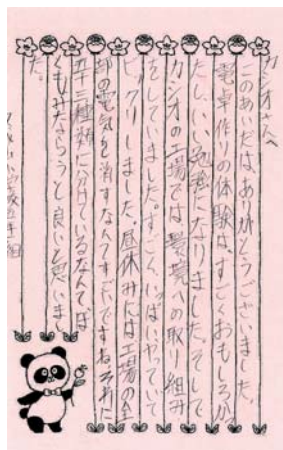 カシオさんへ
このあいだは、ありがとうございました。
電卓作りの体験は、すごくおもしろかっ
たし、いい勉強になりました。そして
カシオの工場では、環境への取り組み
をしていました。すごく、いっぱいやっていて
ビックリしました。昼休みには、工場の全
部の電気を消すなんてすごいですね。それに
三種類に分けているなんてぼ
くもみならうと良いと思いまし
た。